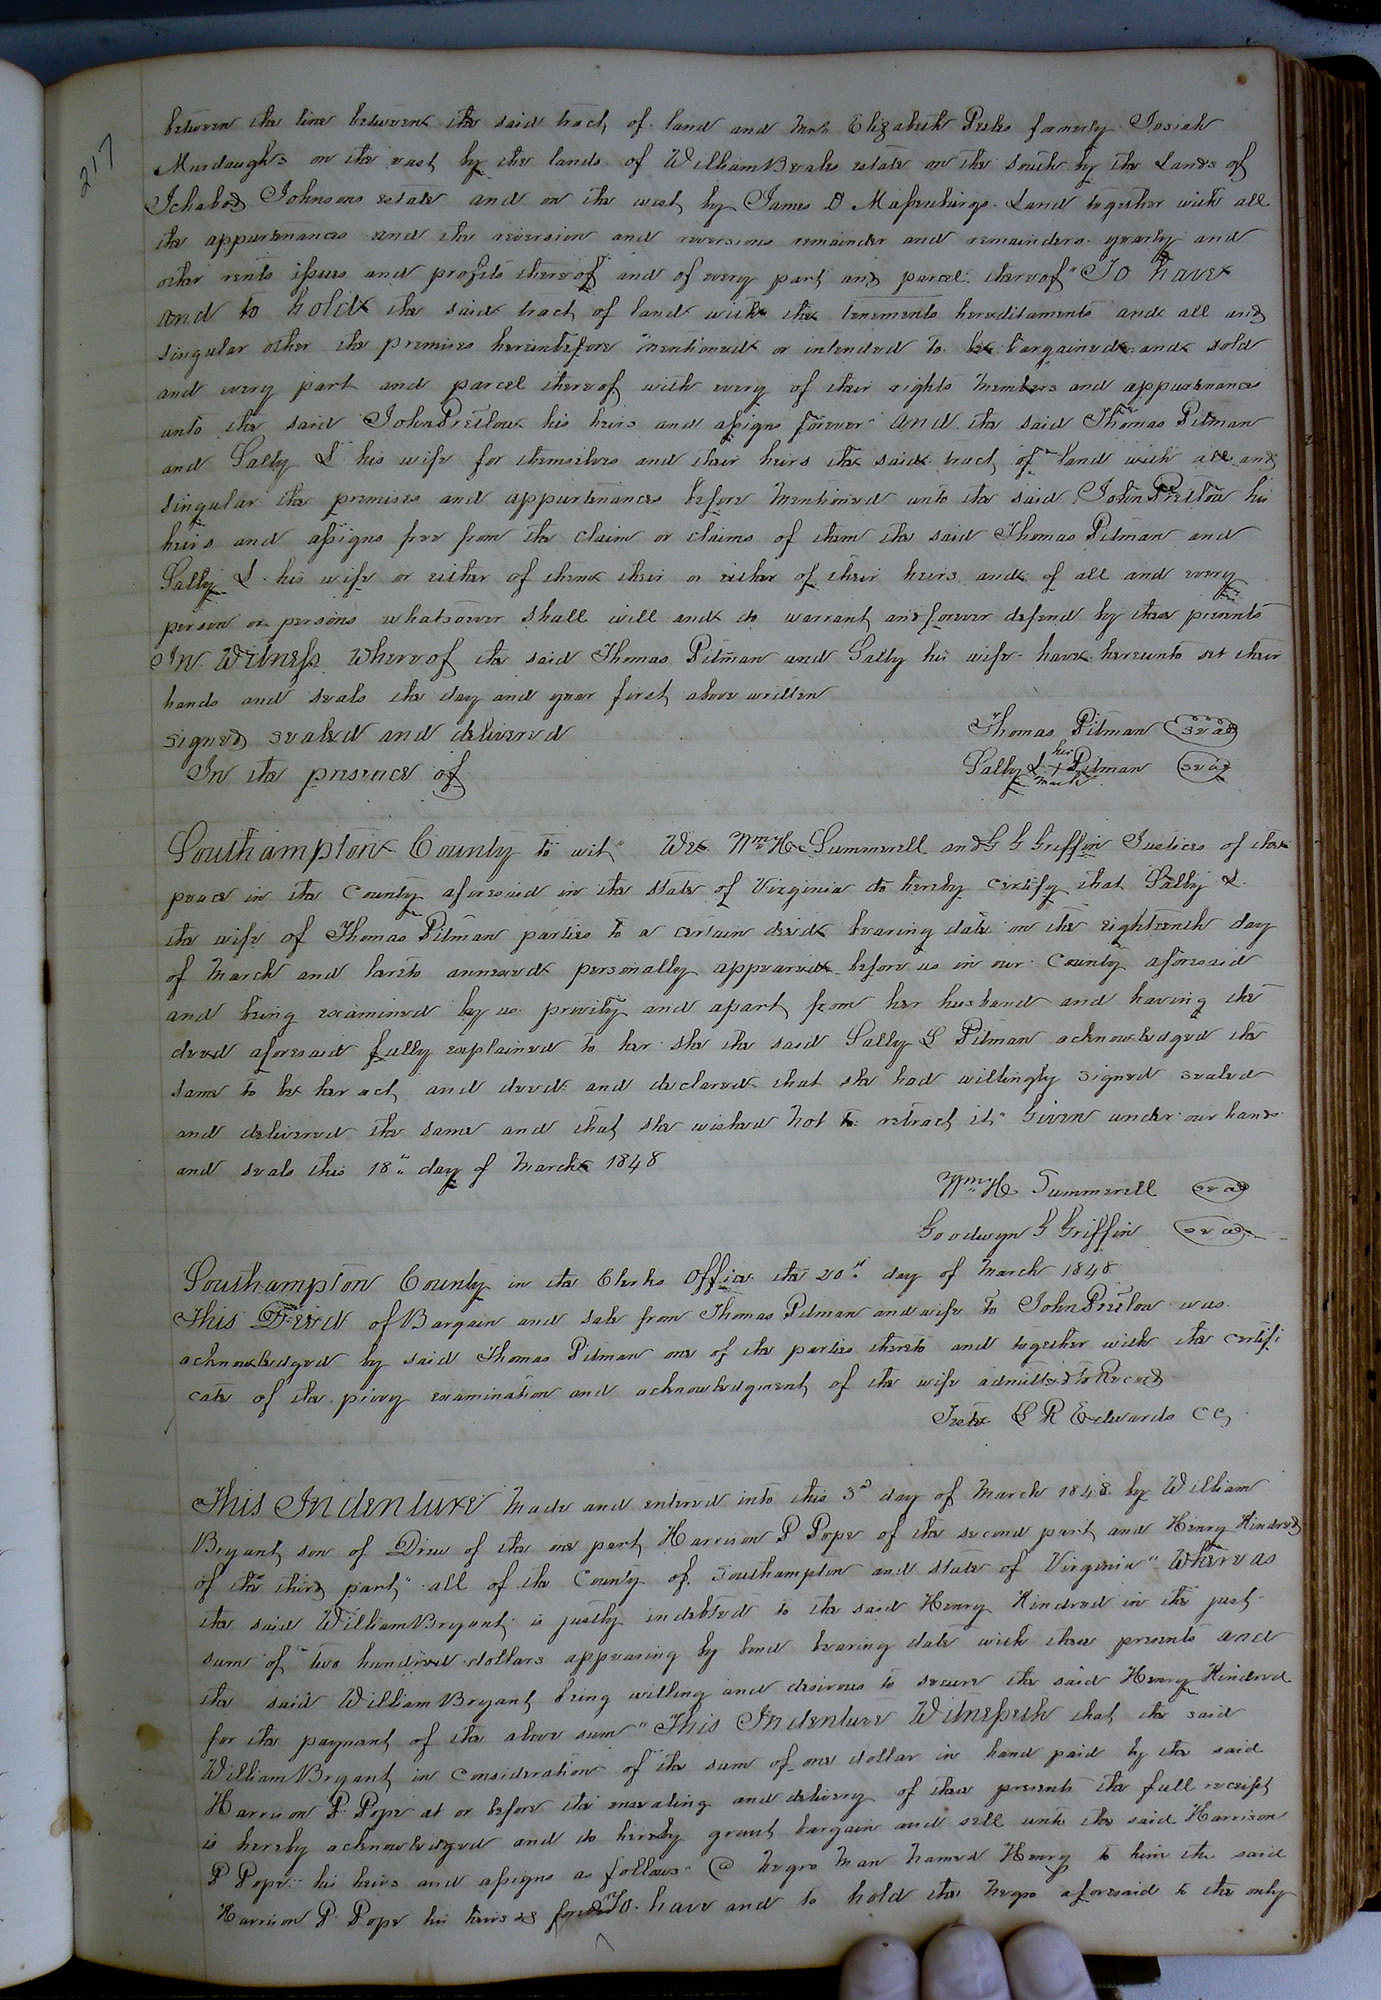 217
between the line between the said tract of land and Mrs Elizabeth Peeks formerly Josiah
Murdaughs on the east by the lands of William Beales estate on the south by the Lands of
Ichabod Johnsons estate and on the west by James D Massenburgs Land together with all
the appurtenances and the reversion and reversions remainder and remainders yearly and
other rents issues and profits thereof and of every part and parcel thereof" To have
and to hold the said tract of land with the tenements hereditaments and all and
singular other the premises hereintofore mentioned or intended to be bargained and sold
and every part and parcel thereof with every of their rights members and appurtenances
unto the said John Pretlow his heirs and assigns forever" and the said Thomas Pitman
and Sally L his wife for themselves and their heirs the said tract of land with all and
singular the premises and appurtenances before mentioned unto the said John Pretlow his
heirs and assigns free from the claim or claims of them the said Thomas Pitman and
Sally L his wife or either of them their or either of their heirs and of all and every
person or persons whatsoever shall will and do warrant and forever defend by these presents
In Witness Whereof the said Thomas Pitman and Sally his wife have hereunto set their
hands and seals the day and year first above written
signed sealed and delivered Thomas Pitman seal
In the presence of Sally L her + mark Pitman seal
Southampton County to wit" We Wm H Summerell and G G Griffin Justices of the
peace in the County aforesaid in the state of Virginia do hereby certify that Sally L
the wife of Thomas Pitman parties to a certain deed bearing date on the eighteenth day
of March and hereto annexed personally appeared before us in our County aforesaid
and being examined by us privily and apart from her husband and having the
deed aforesaid fully explained to her she the said Sally L Pitman acknowledged the
same to be her act and deed and declared that she had willingly signed sealed
and delivered the same and that she wished not to retract it" Given under our hands
and seals this 18th day of March 1848
Wm H Summerell seal
Goodwyn G Griffin seal
Southampton County in the Clerks Office the 20th day of March 1848
This Deed of Bargain and sale from Thomas Pitman and wife to John Pretlow was
acknowledged by said Thomas Pitman one of the parties thereto and together with the certifi
cate of the privy examination and acknowledgment of the wife admitted to Record
Teste L R Edwards CC
This Indenture Made and entered into this 3d day of March 1848 by William
Bryant son of Drew of the one part Harrison P Pope of the second part and Henry Kindred
of the third part" all of the County of Southampton and state of Virginia" Whereas
the said William Bryant is justly indebted to the said Henry Kindred in the just
sum of two hundred dollars appearing by bond bearing date with these presents and
the said William Bryant being willing and desirous to secure the said Henry Kindred
for the payment of the above sum" This Indenture Witnesseth that the said
William Bryant in consideration of the sum of one dollar in hand paid by the said
Harrison P Pope at or before the ensealing and delivery of these presents the full receipt
is hereby acknowledged and do hereby grant bargain and sell unto the said Harrison
P Pope his heirs and assigns as follows" @ Negro Man Named Henry to him the said
Harrison P Pope his heirs &c forever To have and to hold the Negro aforesaid to the only